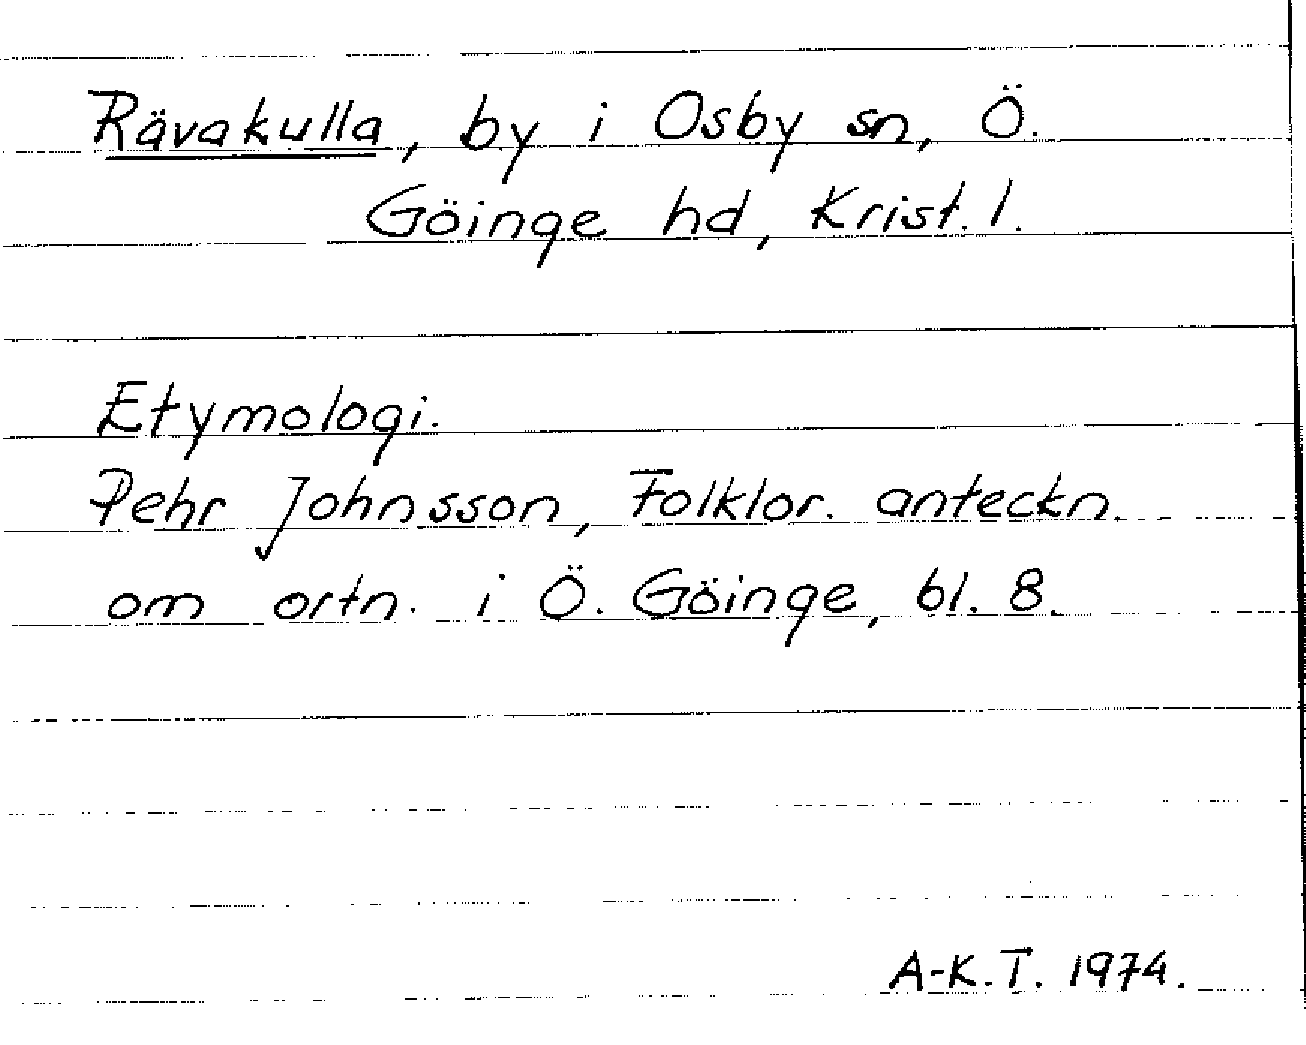 Rävakulla, by i Osby sn, Ö.
Göinge hd, Krist. l.
Etymologi.
Pehr Johnsson, Folklor. anteckn.
om ortn. i Ö. Göinge, bl. 8.
A-K.T. 1974.